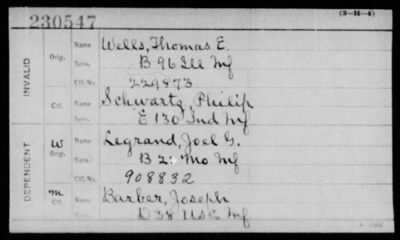 (3-H-4)
230547
INVALID
Orig. Name Wells, Thomas E.
Serv. B 96 Ill Inf
Ctf. No. 229873
Ctf. Name Schwartz, Philip
Serv. E 130 Ind Inf
DEPENDENT
W Orig. Name Legrand, Joel G.
Serv. B 2 Mo Inf
Ctf. No. 908832
m Ctf. Name Barber, Joseph
Serv. D 38 USC Inf